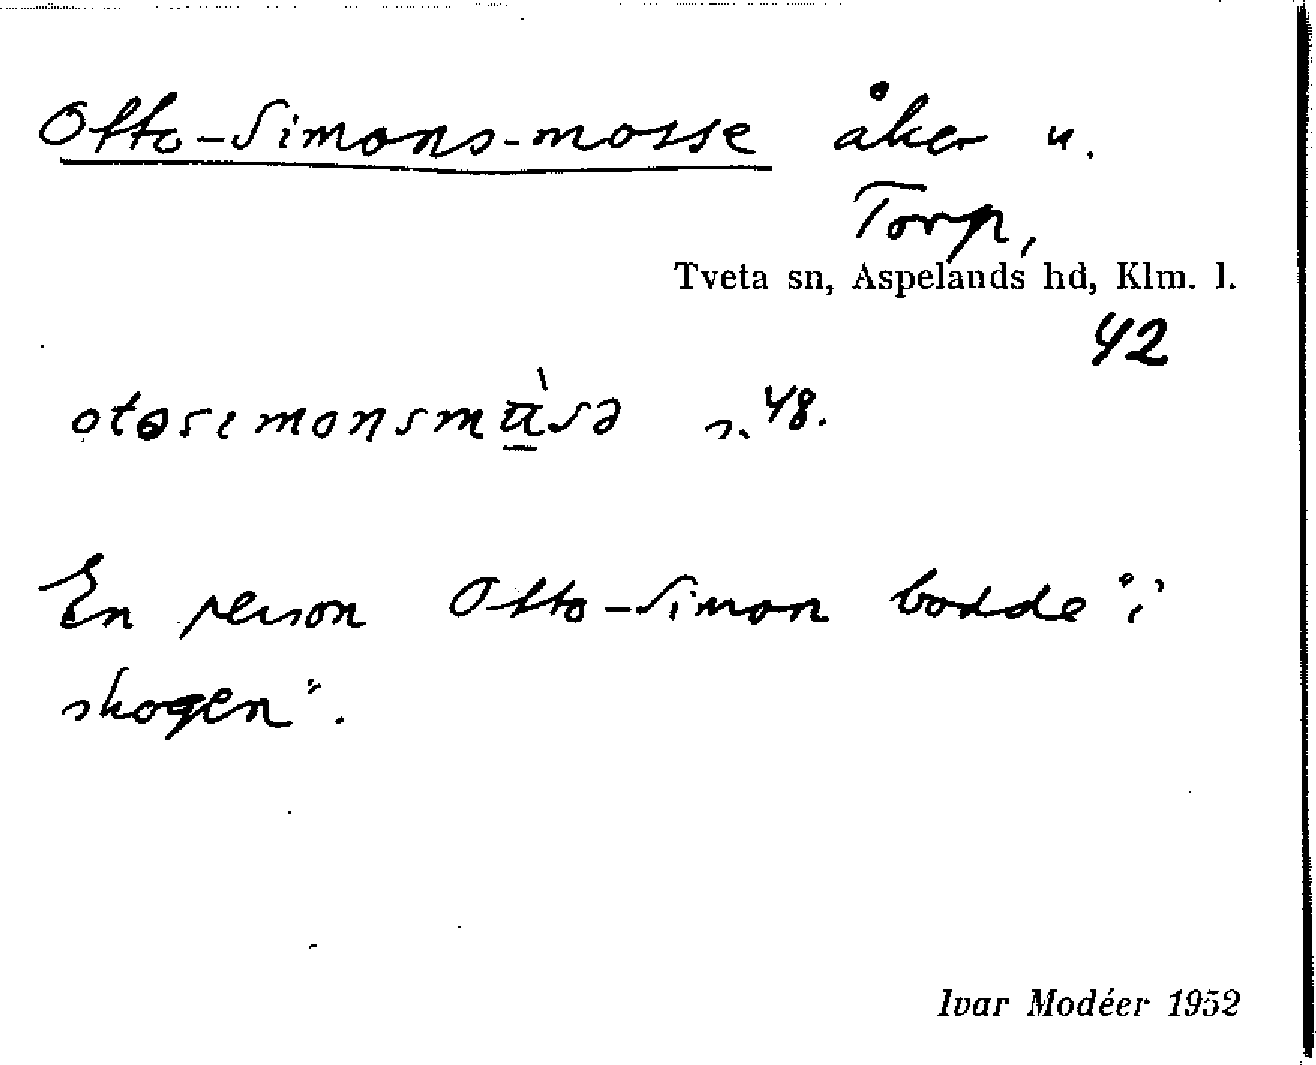 Otto-Simons-mosse åker u.
Torp,
Tveta sn, Aspelands hd, Klm. l.
42
s. 48.
En person Otto-Simon bodde "i
skogen".
Ivar Modéer 1952